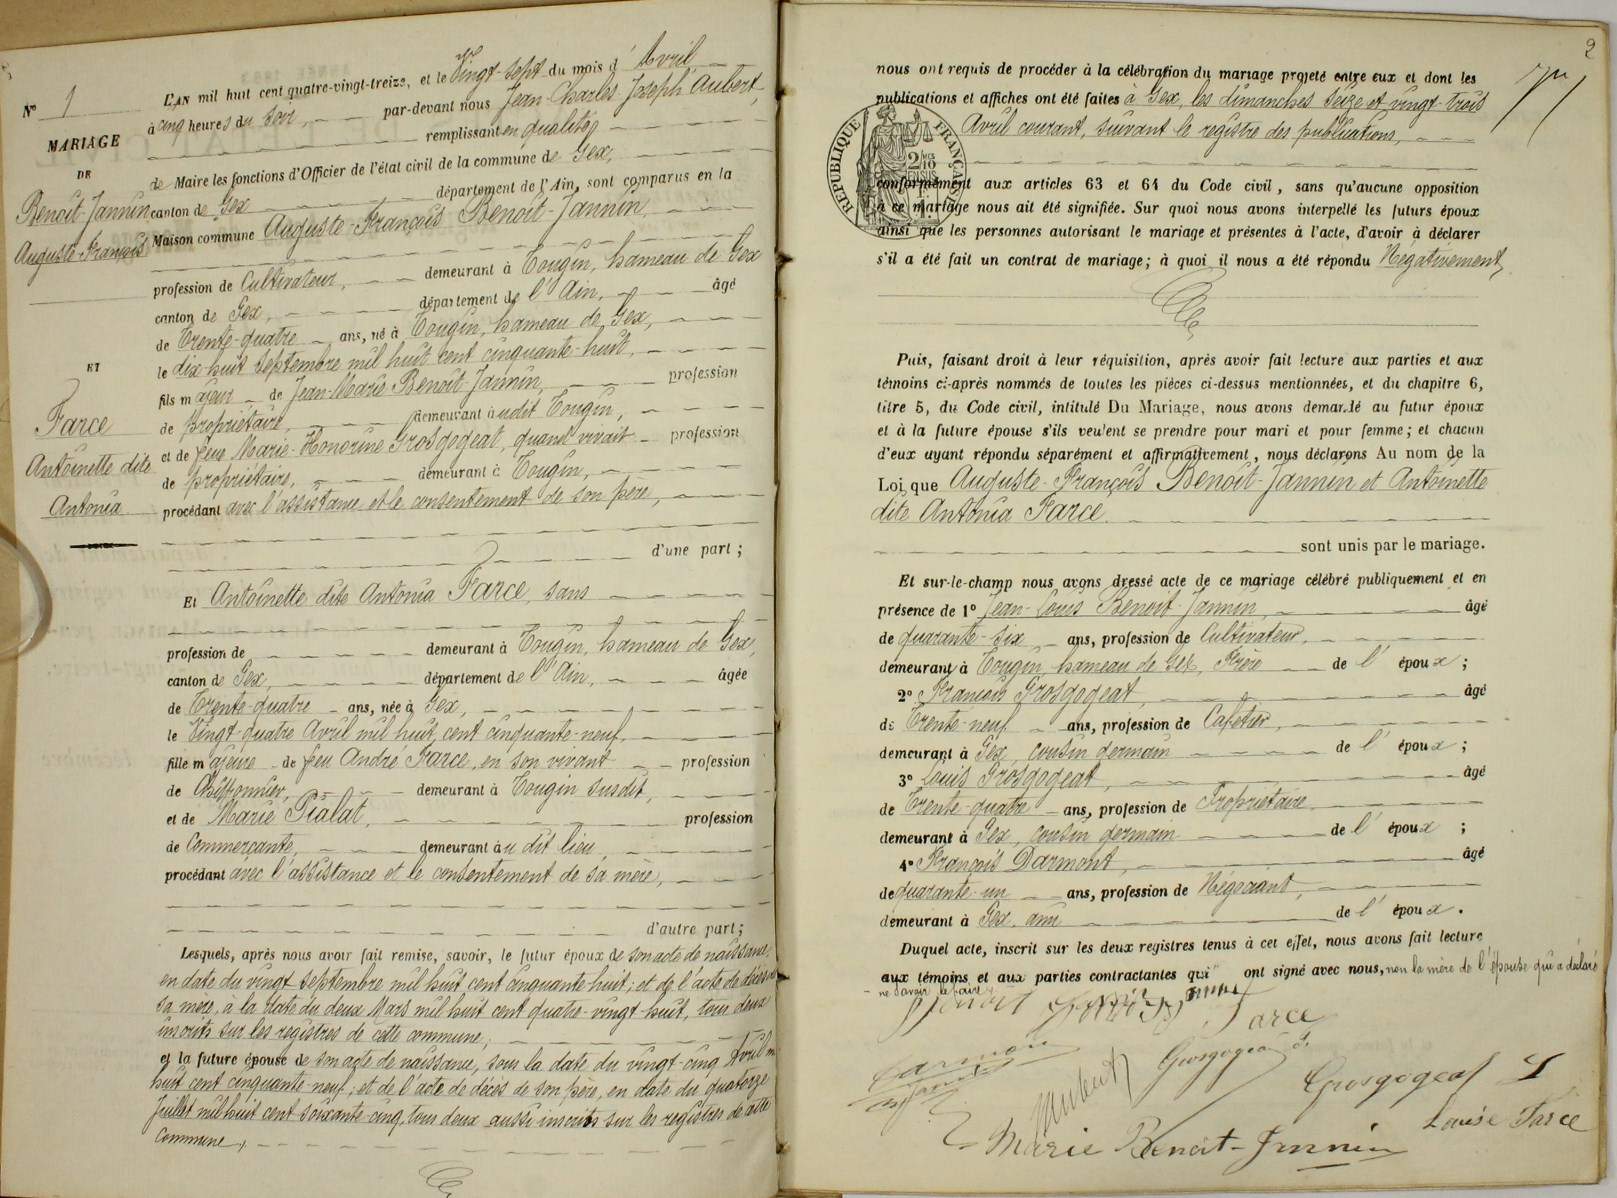 N° 1
MARIAGE
DE
Benoît-Jannin
Auguste-François
ET
Farce
Antoinette dite
Antonia
L'AN mil huit cent quatre-vingt-treize, et le Vingt-sept du mois d'Avril
à cinq heures du soir, par-devant nous Jean-Charles Joseph Aubert,
remplissant en qualité
de Maire les fonctions d'Officier de l'état civil de la commune de Gex,
canton de Gex département de l'Ain, sont comparus en la
Maison commune Auguste-François Benoît-Jannin
profession de Cultivateur, demeurant à Tougin, hameau de Gex
canton de Gex, département de l'Ain, âgé
de Trente-quatre ans, né à Tougin, hameau de Gex,
le dix-huit Septembre mil huit cent cinquante-huit,
fils majeur de Jean-Marie Benoît-Jannin, profession
de propriétaire, demeurant audit Tougin,
et de feue Marie-Honorine Grosgogeat, quand vivait profession
de propriétaire, demeurant à Tougin,
procédant avec l'assistance et le consentement de son père,
d'une part ;
Et Antoinette dite Antonia Farce, sans
profession de demeurant à Tougin, hameau de Gex,
canton de Gex, département de l'Ain, âgée
de Trente-quatre ans, née à Gex,
le Vingt-quatre Avril mil huit cent cinquante-neuf,
fille majeure de feu André Farce, en son vivant profession
de Chiffonnier, demeurant à Tougin susdit,
et de Marie Pialat, profession
de Commerçante, demeurant au dit lieu,
procédant avec l'assistance et le consentement de sa mère,
d'autre part ;
Lesquels, après nous avoir fait remise, savoir, le futur époux de son acte de naissance
en date du vingt Septembre mil huit cent cinquante-huit ; et de l'acte de décès de
sa mère, à la date du deux Mars mil huit cent quatre-vingt-huit, tous deux
inscrits sur les registres de cette commune,
et la future épouse de son acte de naissance, sous la date du vingt-cinq Avril mil
huit cent cinquante-neuf ; et de l'acte de décès de son père, en date du quatorze
Juillet mil huit cent soixante-cinq, tous deux aussi inscrits sur les registres de cette
commune,
2
nous ont requis de procéder à la célébration du mariage projeté entre eux et dont les
publications et affiches ont été faites à Gex, les dimanches Seize et vingt-trois
Avril courant, suivant le registre des publications,
RÉPUBLIQUE FRANÇAISE
conformément aux articles 63 et 64 du Code civil, sans qu'aucune opposition
à ce mariage nous ait été signifiée. Sur quoi nous avons interpellé les futurs époux
ainsi que les personnes autorisant le mariage et présentes à l'acte, d'avoir à déclarer
s'il a été fait un contrat de mariage ; à quoi il nous a été répondu Négativement,
Puis, faisant droit à leur réquisition, après avoir fait lecture aux parties et aux
témoins ci-après nommés de toutes les pièces ci-dessus mentionnées, et du chapitre 6,
titre 5, du Code civil, intitulé Du Mariage, nous avons demandé au futur époux
et à la future épouse s'ils veulent se prendre pour mari et pour femme ; et chacun
d'eux ayant répondu séparément et affirmativement, nous déclarons Au nom de la
Loi que Auguste-François Benoît-Jannin et Antoinette
dite Antonia Farce
sont unis par le mariage.
Et sur-le-champ nous avons dressé acte de ce mariage célébré publiquement et en
présence de 1° Jean-Louis Benoît-Jannin, âgé
de quarante-six ans, profession de Cultivateur,
demeurant à Tougin, hameau de Gex, Frère de l'époux ;
2° François Grosgogeat, âgé
de Trente-neuf ans, profession de Cafetier,
demeurant à Gex, cousin germain de l'époux ;
3° Louis Grosgogeat, âgé
de Trente-quatre ans, profession de Propriétaire
demeurant à Gex, cousin germain de l'époux ;
4° François Darmont, âgé
de quarante-un ans, profession de Négociant,
demeurant à Gex, ami de l'époux.
Duquel acte, inscrit sur les deux registres tenus à cet effet, nous avons fait lecture
aux témoins et aux parties contractantes qui ont signé avec nous, non la mère de l'épouse qui a déclaré
ne savoir le faire
Farce
Grosgogeat L
Louise Farce
Marie Benoit-Jannin